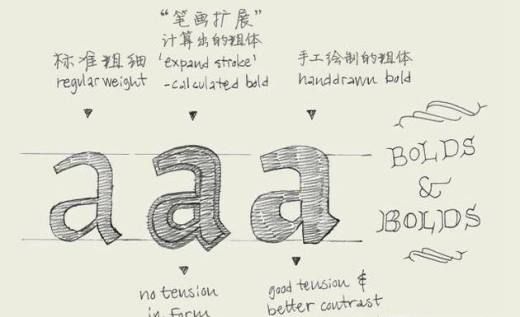 标准粗细
regular weight
“笔画扩展”
计算出的粗体
‘expand stroke’
-calculated bold
手工绘制的粗体
handdrawn bold
a a a
BOLDS
&
BOLDS
no tension
in form
good tension &
better contrast